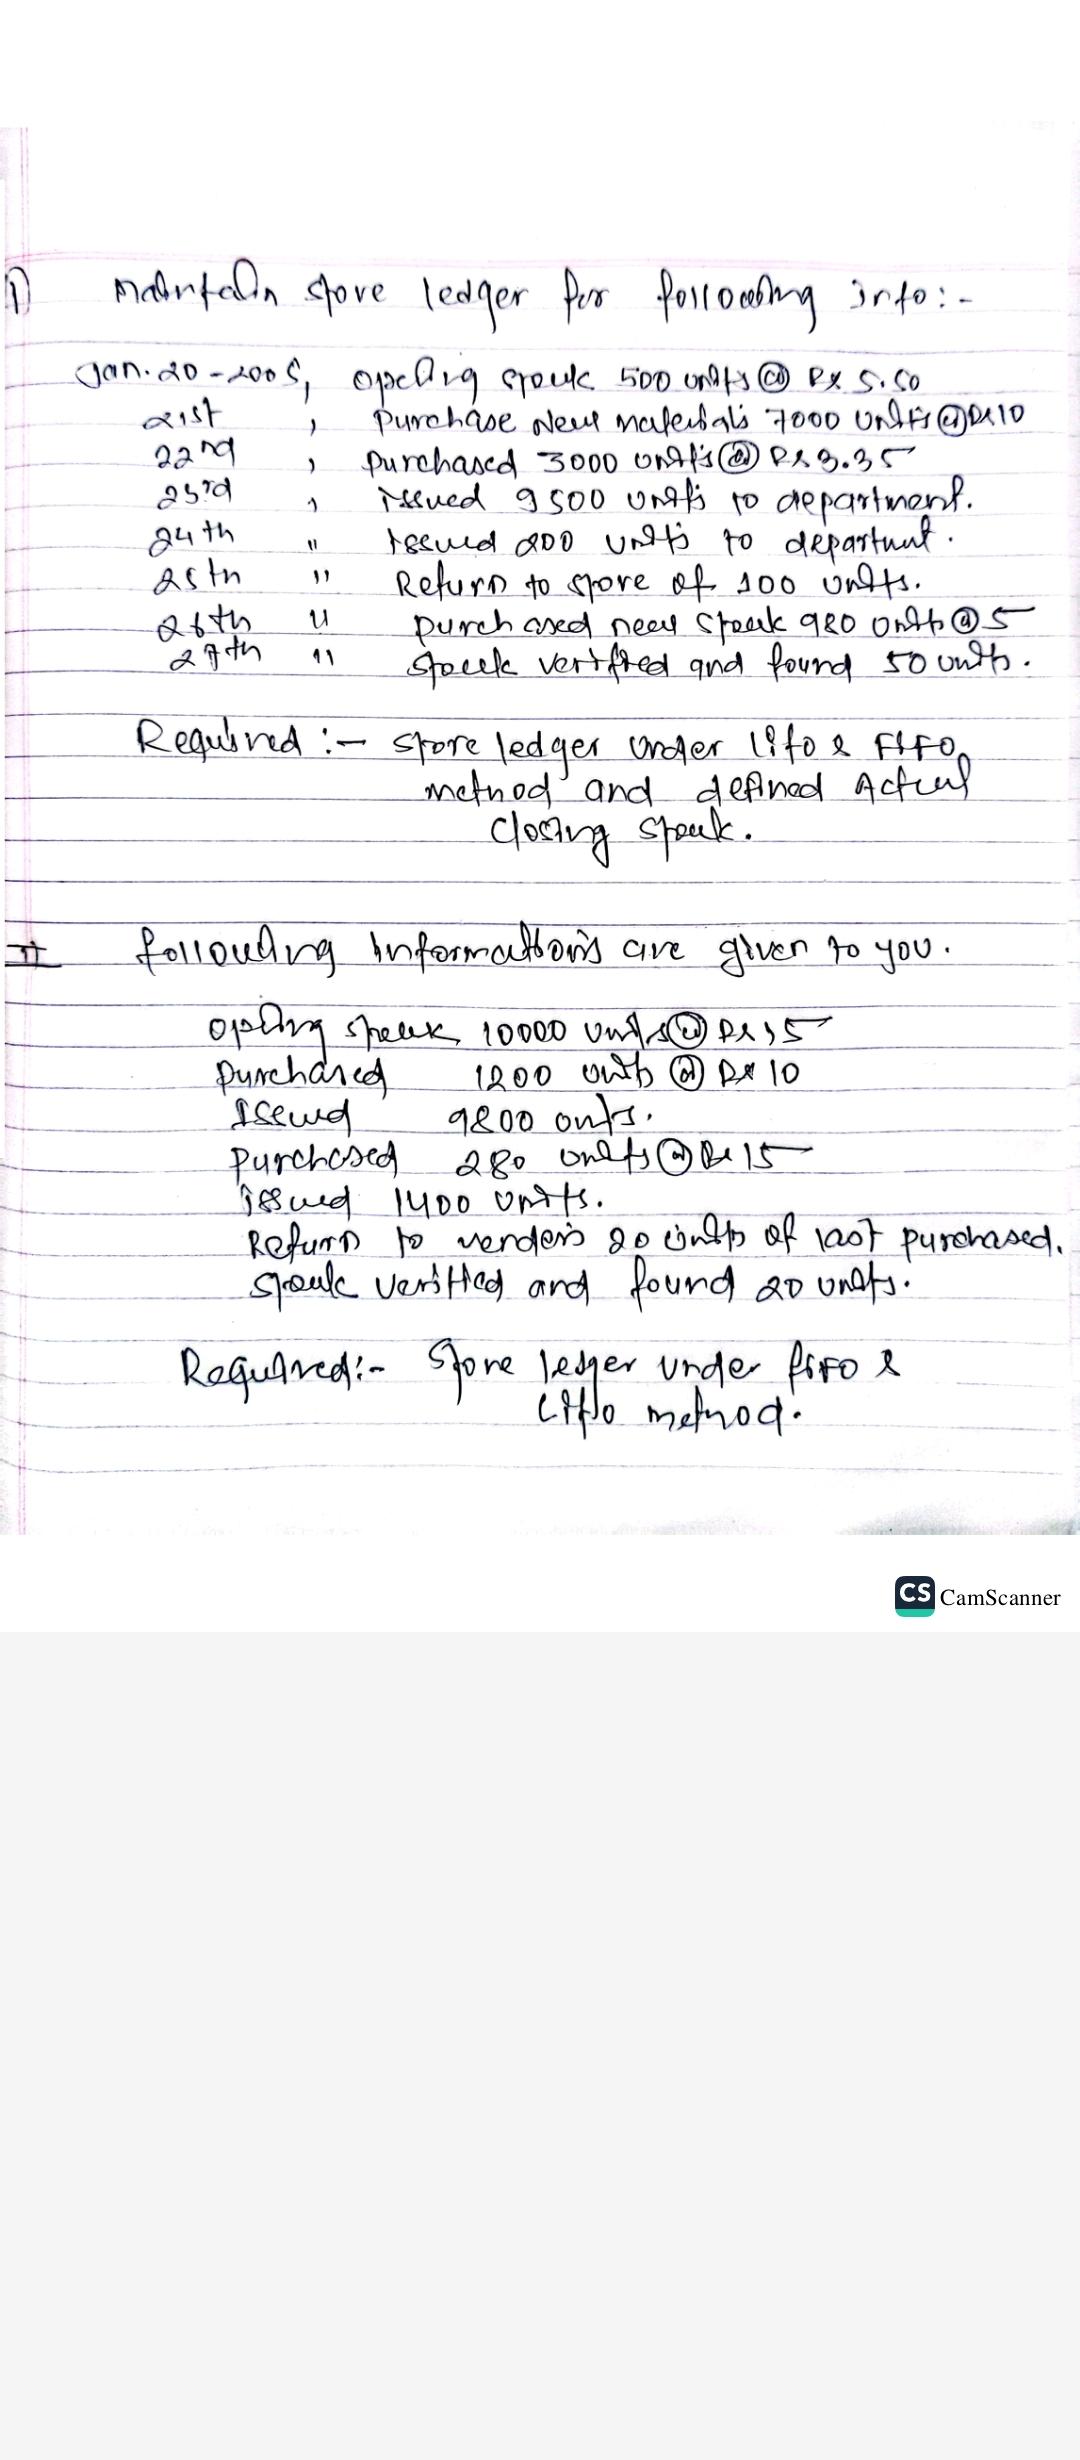 1) Maintain store ledger for following info:-
Jan. 20-2005, opening stock 500 units @ Rs 5.50
21st , Purchase New materials 7000 units @ Rs 10
22nd , Purchased 3000 units @ Rs 3.35
23rd , issued 9500 units to department.
24th " Issued 200 units to
25th " Return to store of 100 units.
26th " Purchased new stock 980 units @ 5
27th " Stock verified and found 50 units.
Required :- store ledger under lifo & FIFO
method and defined Actual
Closing stock.
II following informations are given to you.
stock 10000 units @ Rs
Purchased 1200 units @ Rs 10
Issued 9800 units.
Purchased 280 units @ Rs 15
issued 1400 units.
Return to vendors 20 units of last purchased.
Stock verified and found 20 units.
Required:- Store ledger under fifo &
method.
CS CamScanner